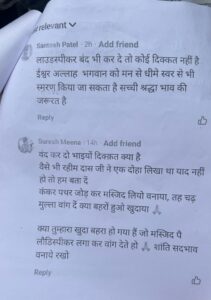 relevant
Santosh Patel · 2h Add friend
लाउडस्पीकर बंद भी कर दे तो कोई दिक्कत नहीं है
ईश्वर अल्लाह भगवान को मन से धीमे स्वर से भी
स्मरण किया जा सकता है सच्ची श्रद्धा भाव की
जरूरत है
Reply
Suresh Meena · 14h Add friend
बंद कर दो भाइयों दिक्कत क्या है
वैसे भी रहीम दास जी ने एक दोहा लिखा था याद नहीं
हो तो हम बता दें
कंकर पथर जोड़ कर मस्जिद लियो वनाया, तह चढ़
मुल्ला वांग दें क्या बहरों हुओ खुदाया 🙏
क्या तुम्हारा खुदा बहरा हो गया हैं जो मस्जिद पै
लौडिस्पीकर लगा कर वांग देते हो 🙏 शांति सदभाव
वनाये रखो
Reply